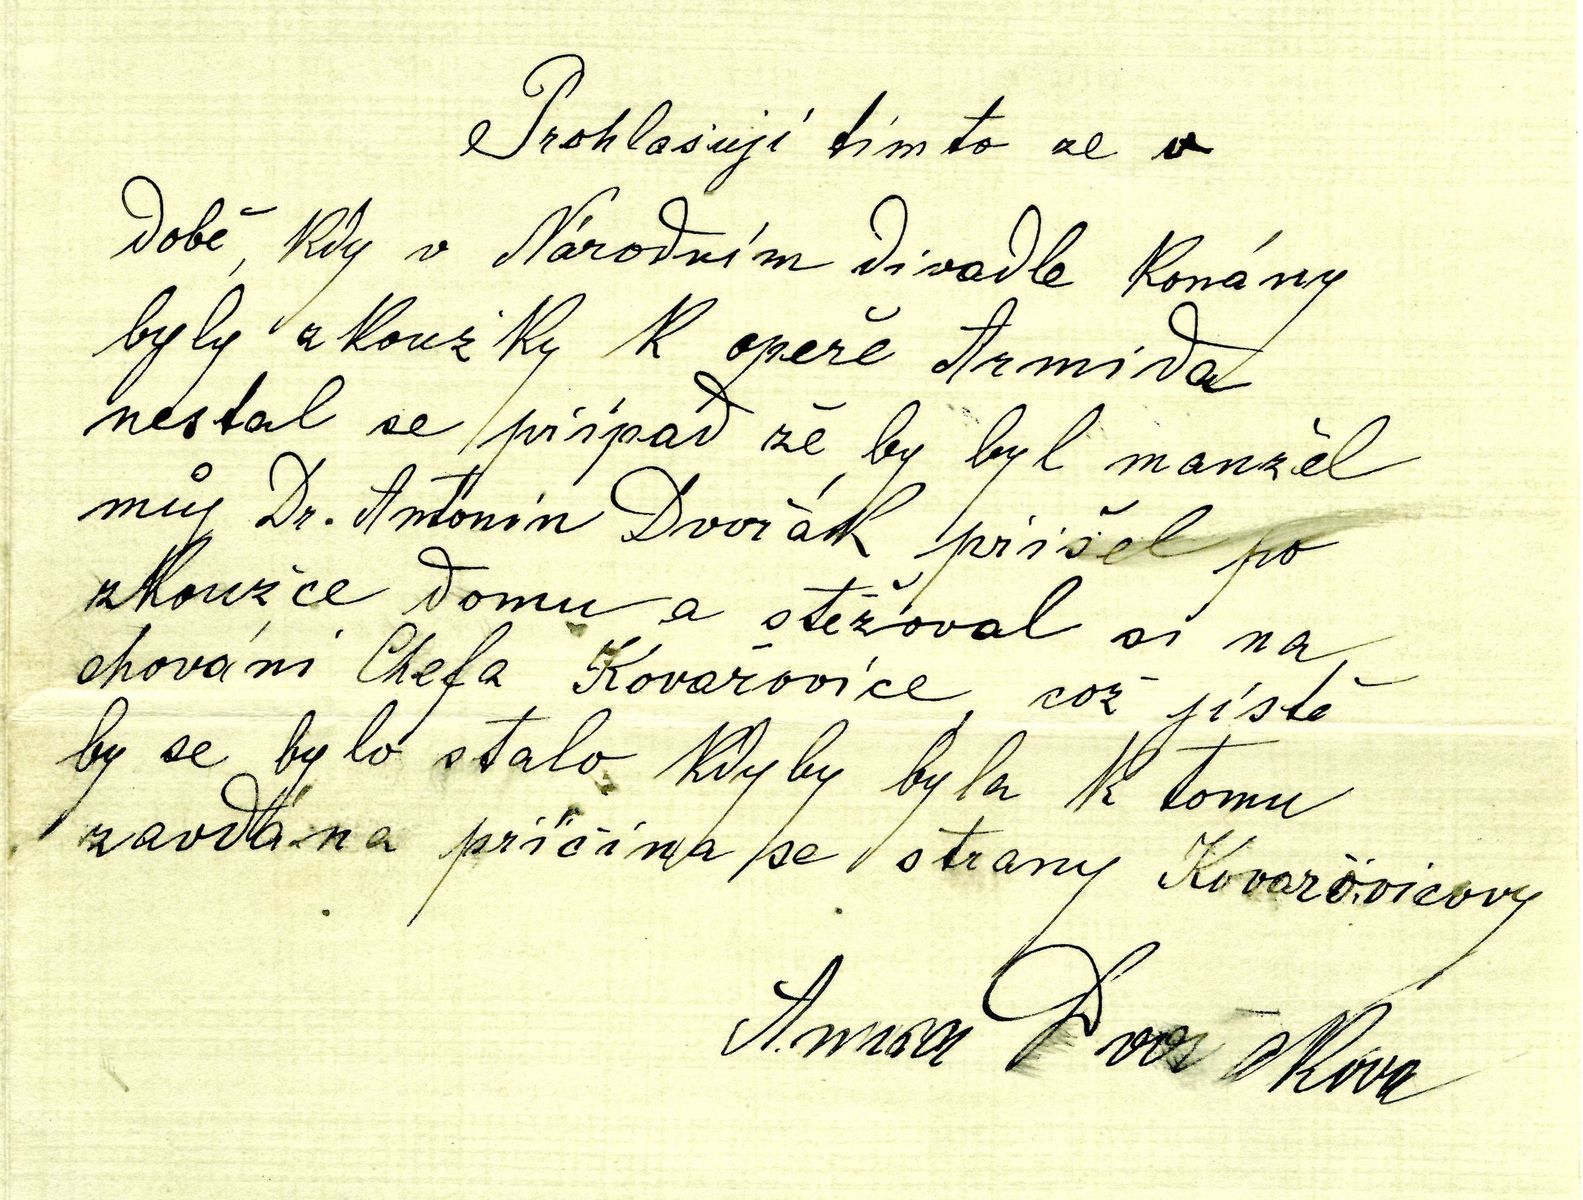 Prohlašuji tímto ze v
době, kdy v Národním divadle konány
byly zkoužky k opeře Armida
nestal se případ zě by byl manžel
můj Dr. Antonín Dvořák přišel po
zkoužce domu a stěžoval si na
chováni Chefa Kovařovice, což jistě
by se bylo stalo kdyby byla k tomu
zavdána příčina se strany Kovařovicovy
Anna Dvořákova